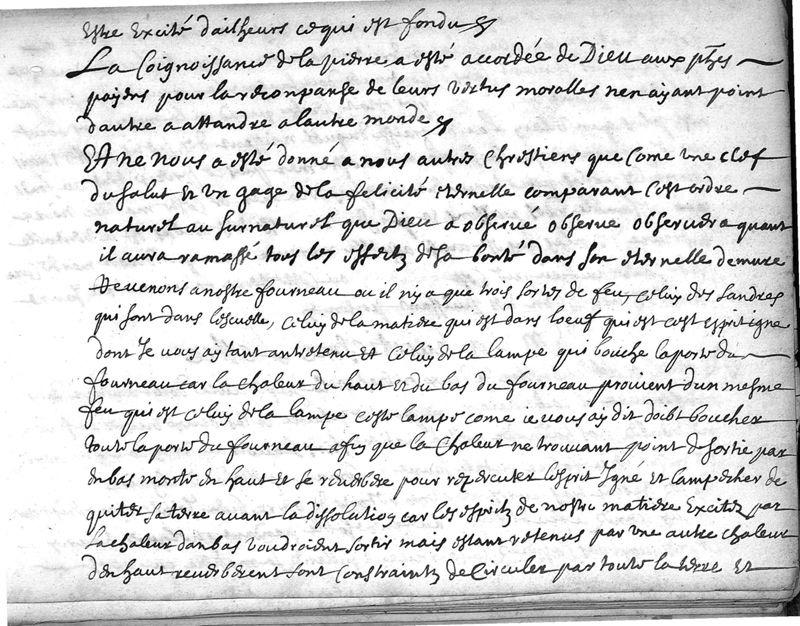 Estre Excité dailheurs ce qui est fondu
La Coignoissance de la pierre a esté accordée de Dieu aux
payens pour la reconpanse de leurs vertus moralles nen ayant point
dautre a attandre a lautre monde
Et ne nous a esté donné a nous autres Chrestiens que come une clef
du salut Et un gage de la felicité eternelle comparant cest ordre
naturel au surnaturel que Dieu a observé observe observera quant
il aura ramassé tous les effectz de sa bonté dans son eternelle demure
Revenons a nostre fourneau ou il n'y a que trois sortes de feu, celuy des sandres
qui sont dans lescuelle, celuy de la matiere qui est dans loeuf qui est cest esprit igne
dont Je vous ay tant antretenu Et celuy de la lampe qui bouche la porte du
fourneau car la chaleur du haut Et du bas du fourneau provient dun mesme
feu qui est celuy de la lampe ceste lampe come ie vous ay dit doibt boucher
toute la porte du fourneau afin que la chaleur ne trouvant point de sortie par
enbas monte en haut Et se reverbere pour repercuter lesprit Igné Et lampecher de
quiter sa terre avant la dissolution car les espritz de nostre matiere Excitez par
la chaleur danbas voudroient sortir mais estant retenus par une autre chaleur
den haut reverberent sont constraintz de Circuler par toute la terre Et